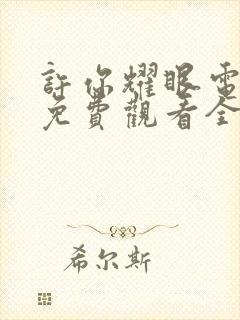 許你耀眼電
免費觀看全
希尔斯